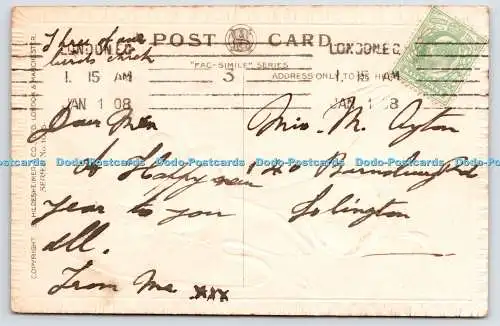 Three of our
birds chick
POST CARD
"FAC-SIMILE" SERIES
ADDRESS ONLY TO BE HERE
LONDON.E.C.
1. 15 AM
JAN 1 08
3
LONDON.E.C.
1. 15 AM
JAN 1 08
COPYRIGHT
HILDESHEIMER & CO. LTD. LONDON & MANCHESTER.
SERIES No.
Dear
A Happy new
year to you
all.
From Me xxx
M. Ayton
140 Barnsbury Rd
Islington
Dodo-Postcards Dodo-Postcards Dodo-Postcards Dodo-Postcards Dodo-Postcards Dodo-Postcards